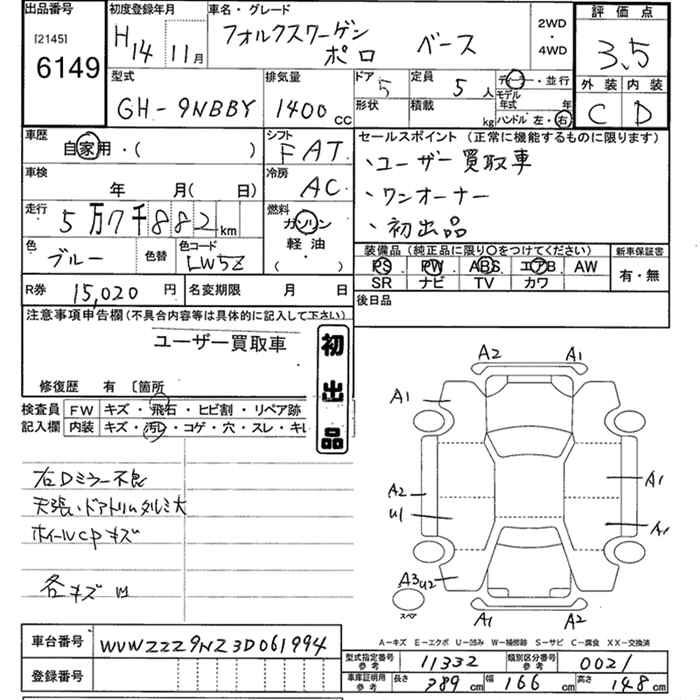 出品番号 初度登録年月 車名・グレード 評価点
[2145] 6149 H14 11月 フォルクスワーゲン ポロ ベース 2WD・4WD 3.5
型式 排気量 ドア 定員 ディーラー・並行 外装 内装
GH-9NBBY 1400cc 5 5人 モデル年式 年 C D
形状 積載 kg ハンドル 左・右
車歴 シフト セールスポイント (正常に機能するものに限ります)
自家用・( ) FAT 、ユーザー買取車
車検 冷房 、ワンオーナー
年 月(日) AC 、初出品
走行 燃料
5万7千882km ガソリン
軽油・
( )
色 色替 色コード 装備品 (純正品に限り○をつけてください) 新車保証書
ブルー LW5Z PS PW ABS エアB AW 有・無
SR ナビ TV カワ
R券 15,020円 名変期限 月 日 後日品
注意事項申告欄 (不具合内容等は具体的に記入して下さい)
ユーザー買取車
初出品
修復歴 有 〔箇所
検査員 FW キズ・飛石・ヒビ割・リペア跡
記入欄 内装 キズ・汚レ・コゲ・穴・スレ・キレ
右Dミラー不良
天張、ドアトリムタルミ大
ホイールCPキズ
各キズ U1
A2 A1
A1
A2 A1
U1 A1
A3 U2
スペア A1 A2
A-キズ E-エクボ U-凹み W-補修跡 S-サビ C-腐食 XX-交換済
車台番号 WVWZZZ9NZ3D061994
型式指定番号 参考 11332 類別区分番号 参考 0021
登録番号
車庫証明用 参考 長さ 389cm 幅 166cm 高さ 148cm